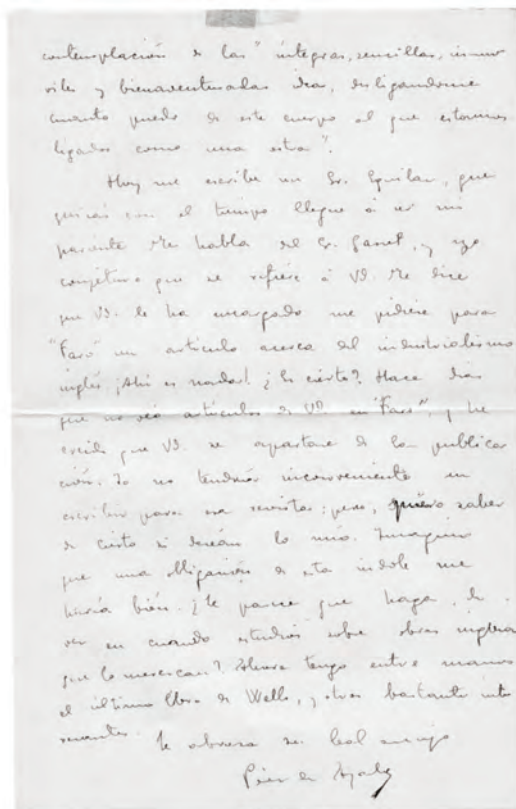 contemplación de las "íntegras, sencillas, inmó
viles y bienaventuradas ideas, desligandome
cuanto puedo de este cuerpo al que estamos
ligados como una ostra".
Hoy me escribe un Sr. Eguilaz, que
quizás con el tiempo llegue á ser mi
pariente. Me habla del Sr. Gasset, y yo
conjeturo que se refiere á Vd. Me dice
que Vd. le ha encargado me pidiese para
"Faro" un artículo acerca del industrialismo
inglés. ¡Ahi es nada! ¿Es cierto? Hace dias
que no veo artículos de Vd. en "Faro", y he
creido que Vd. se apartase de la publica
ción. Yo no tendría inconveniente en
escribir para esa revista; pero, quiero saber
de cierto si desean lo mío. Imagino
que una obligación de esta indole me
haría bién. ¿Le parece que haga, de
vez en cuando estudios sobre obras inglesas
que lo merezcan? Ahora tengo entre manos
el último libro de Wells, y otros bastante inte
resantes. Le abraza su leal amigo
Pérez de Ayala